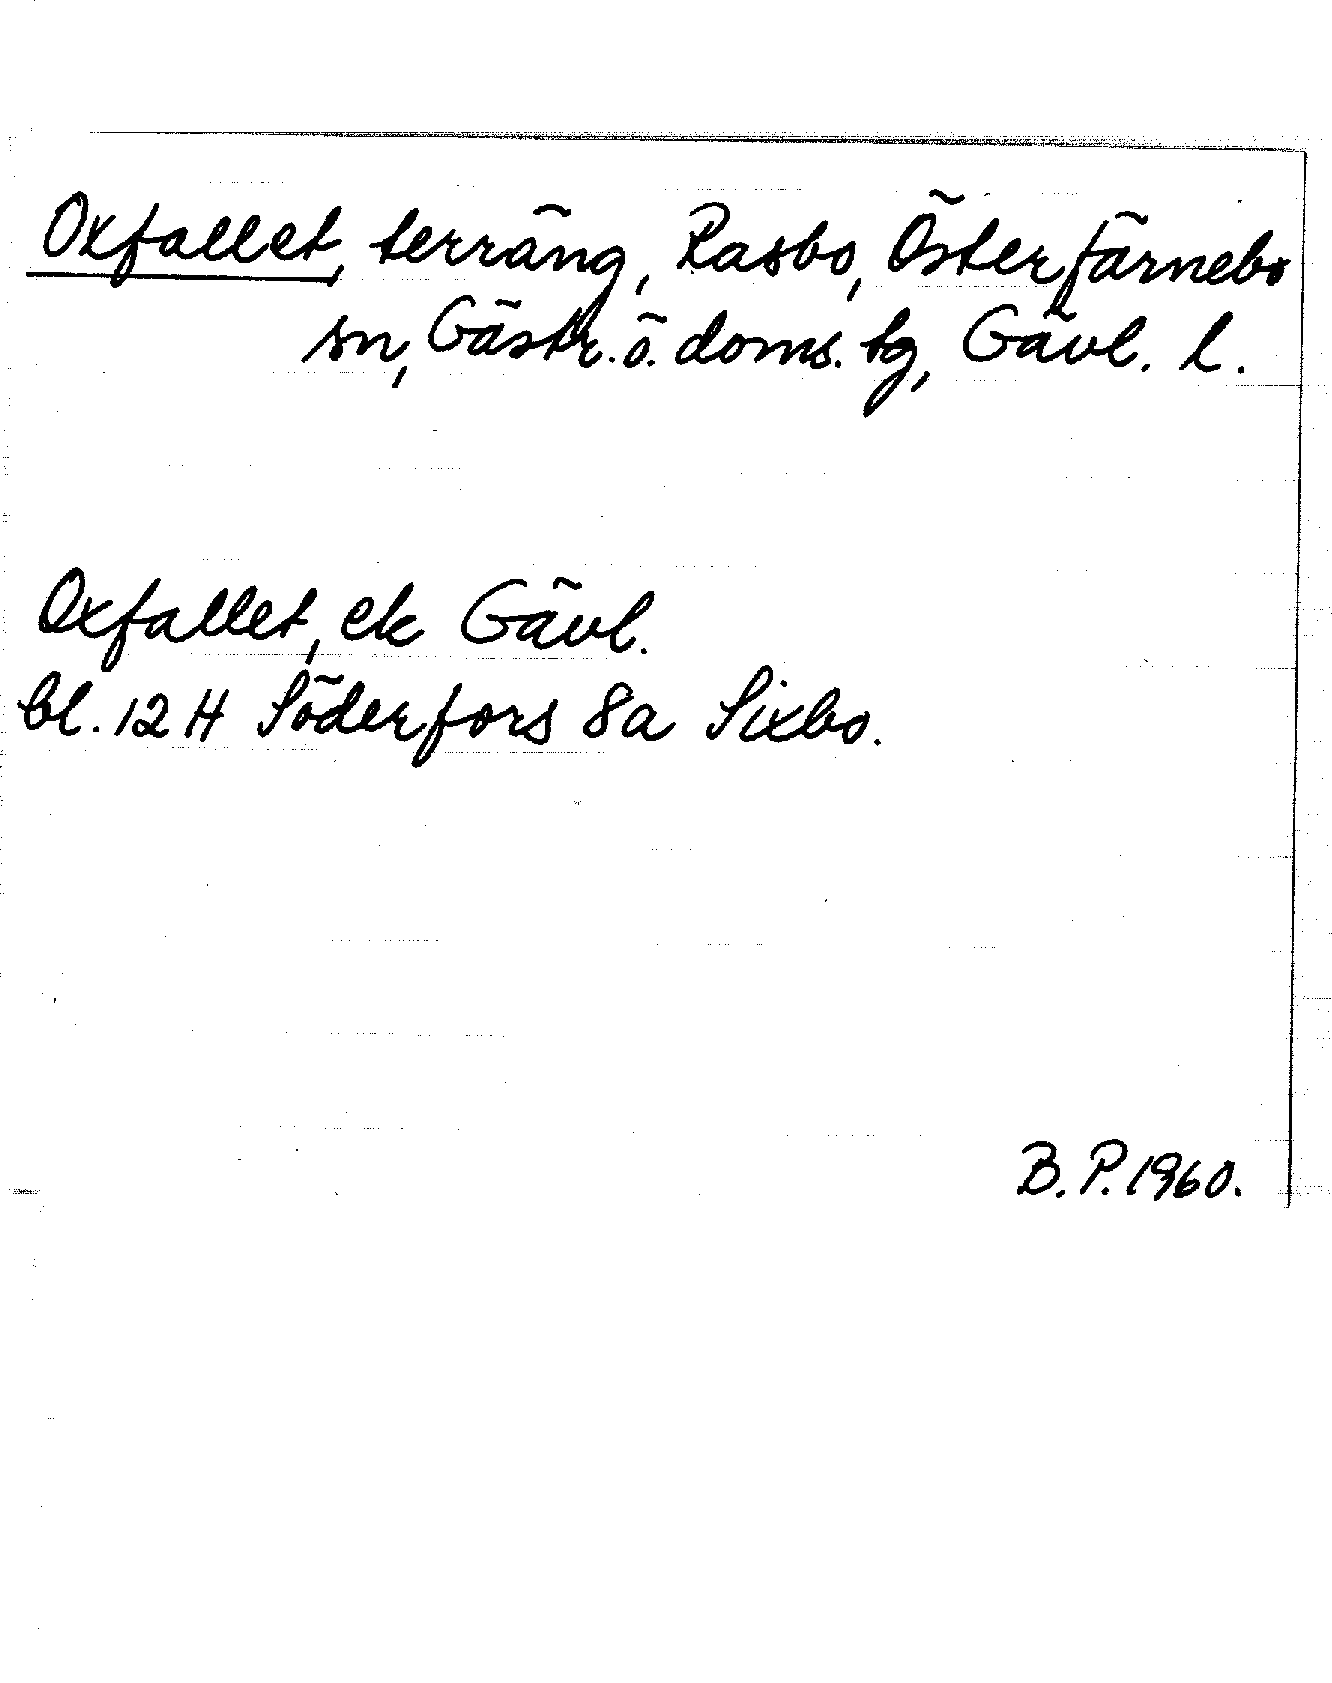 Oxfallet, terräng, Rasbo, Österfärnebo
sn, Gästr. ö. doms. tg, Gävl. l.
Oxfallet, ek Gävl.
bl. 12 H Söderfors 8a Sixbo.
B. P. 1960.